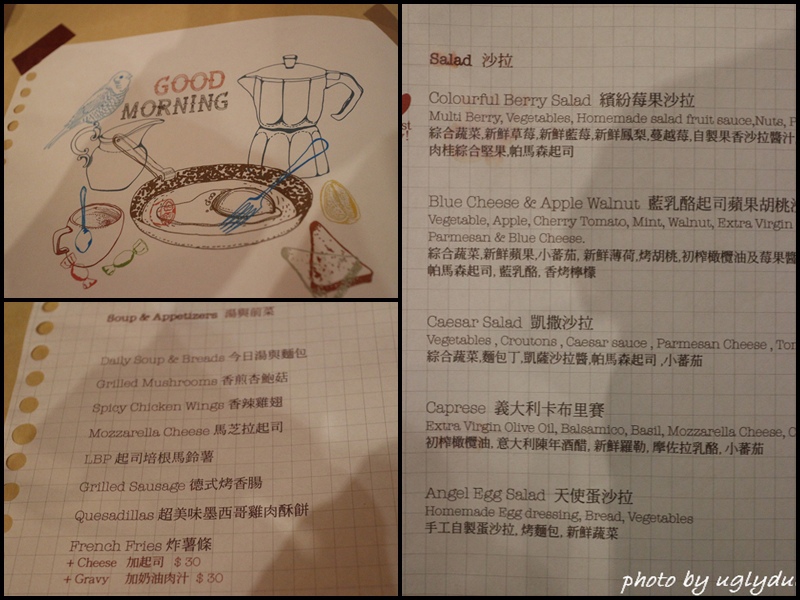 GOOD
MORNING
Soup & Appetizers 湯與前菜
Daily Soup & Breads 今日湯與麵包
Grilled Mushrooms 香煎杏鮑菇
Spicy Chicken Wings 香辣雞翅
Mozzarella Cheese 馬芝拉起司
LBP 起司培根馬鈴薯
Grilled Sausage 德式烤香腸
Quesadillas 超美味墨西哥雞肉酥餅
French Fries 炸薯條
+ Cheese 加起司 $30
+ Gravy 加奶油肉汁 $30
Salad 沙拉
Colourful Berry Salad 繽紛莓果沙拉
Multi Berry, Vegetables, Homemade salad fruit sauce,Nuts,
綜合蔬菜,新鮮草莓,新鮮藍莓,新鮮鳳梨,蔓越莓,自製果香沙拉醬汁
肉桂綜合堅果,帕馬森起司
Blue Cheese & Apple Walnut 藍乳酪起司蘋果胡桃
Vegetable, Apple, Cherry Tomato, Mint, Walnut, Extra Virgin
Parmesan & Blue Cheese.
綜合蔬菜,新鮮蘋果,小蕃茄, 新鮮薄荷,烤胡桃,初榨橄欖油及莓果醬
帕馬森起司, 藍乳酪, 香烤檸檬
Caesar Salad 凱撒沙拉
Vegetables , Croutons , Caesar sauce , Parmesan Cheese ,
綜合蔬菜,麵包丁,凱薩沙拉醬,帕馬森起司 ,小蕃茄
Caprese 義大利卡布里賽
Extra Virgin Olive Oil, Balsamico, Basil, Mozzarella Cheese,
初榨橄欖油, 意大利陳年酒醋, 新鮮羅勒, 摩佐拉乳酪, 小蕃茄
Angel Egg Salad 天使蛋沙拉
Homemade Egg dressing, Bread, Vegetables
手工自製蛋沙拉, 烤麵包, 新鮮蔬菜
photo by uglydu